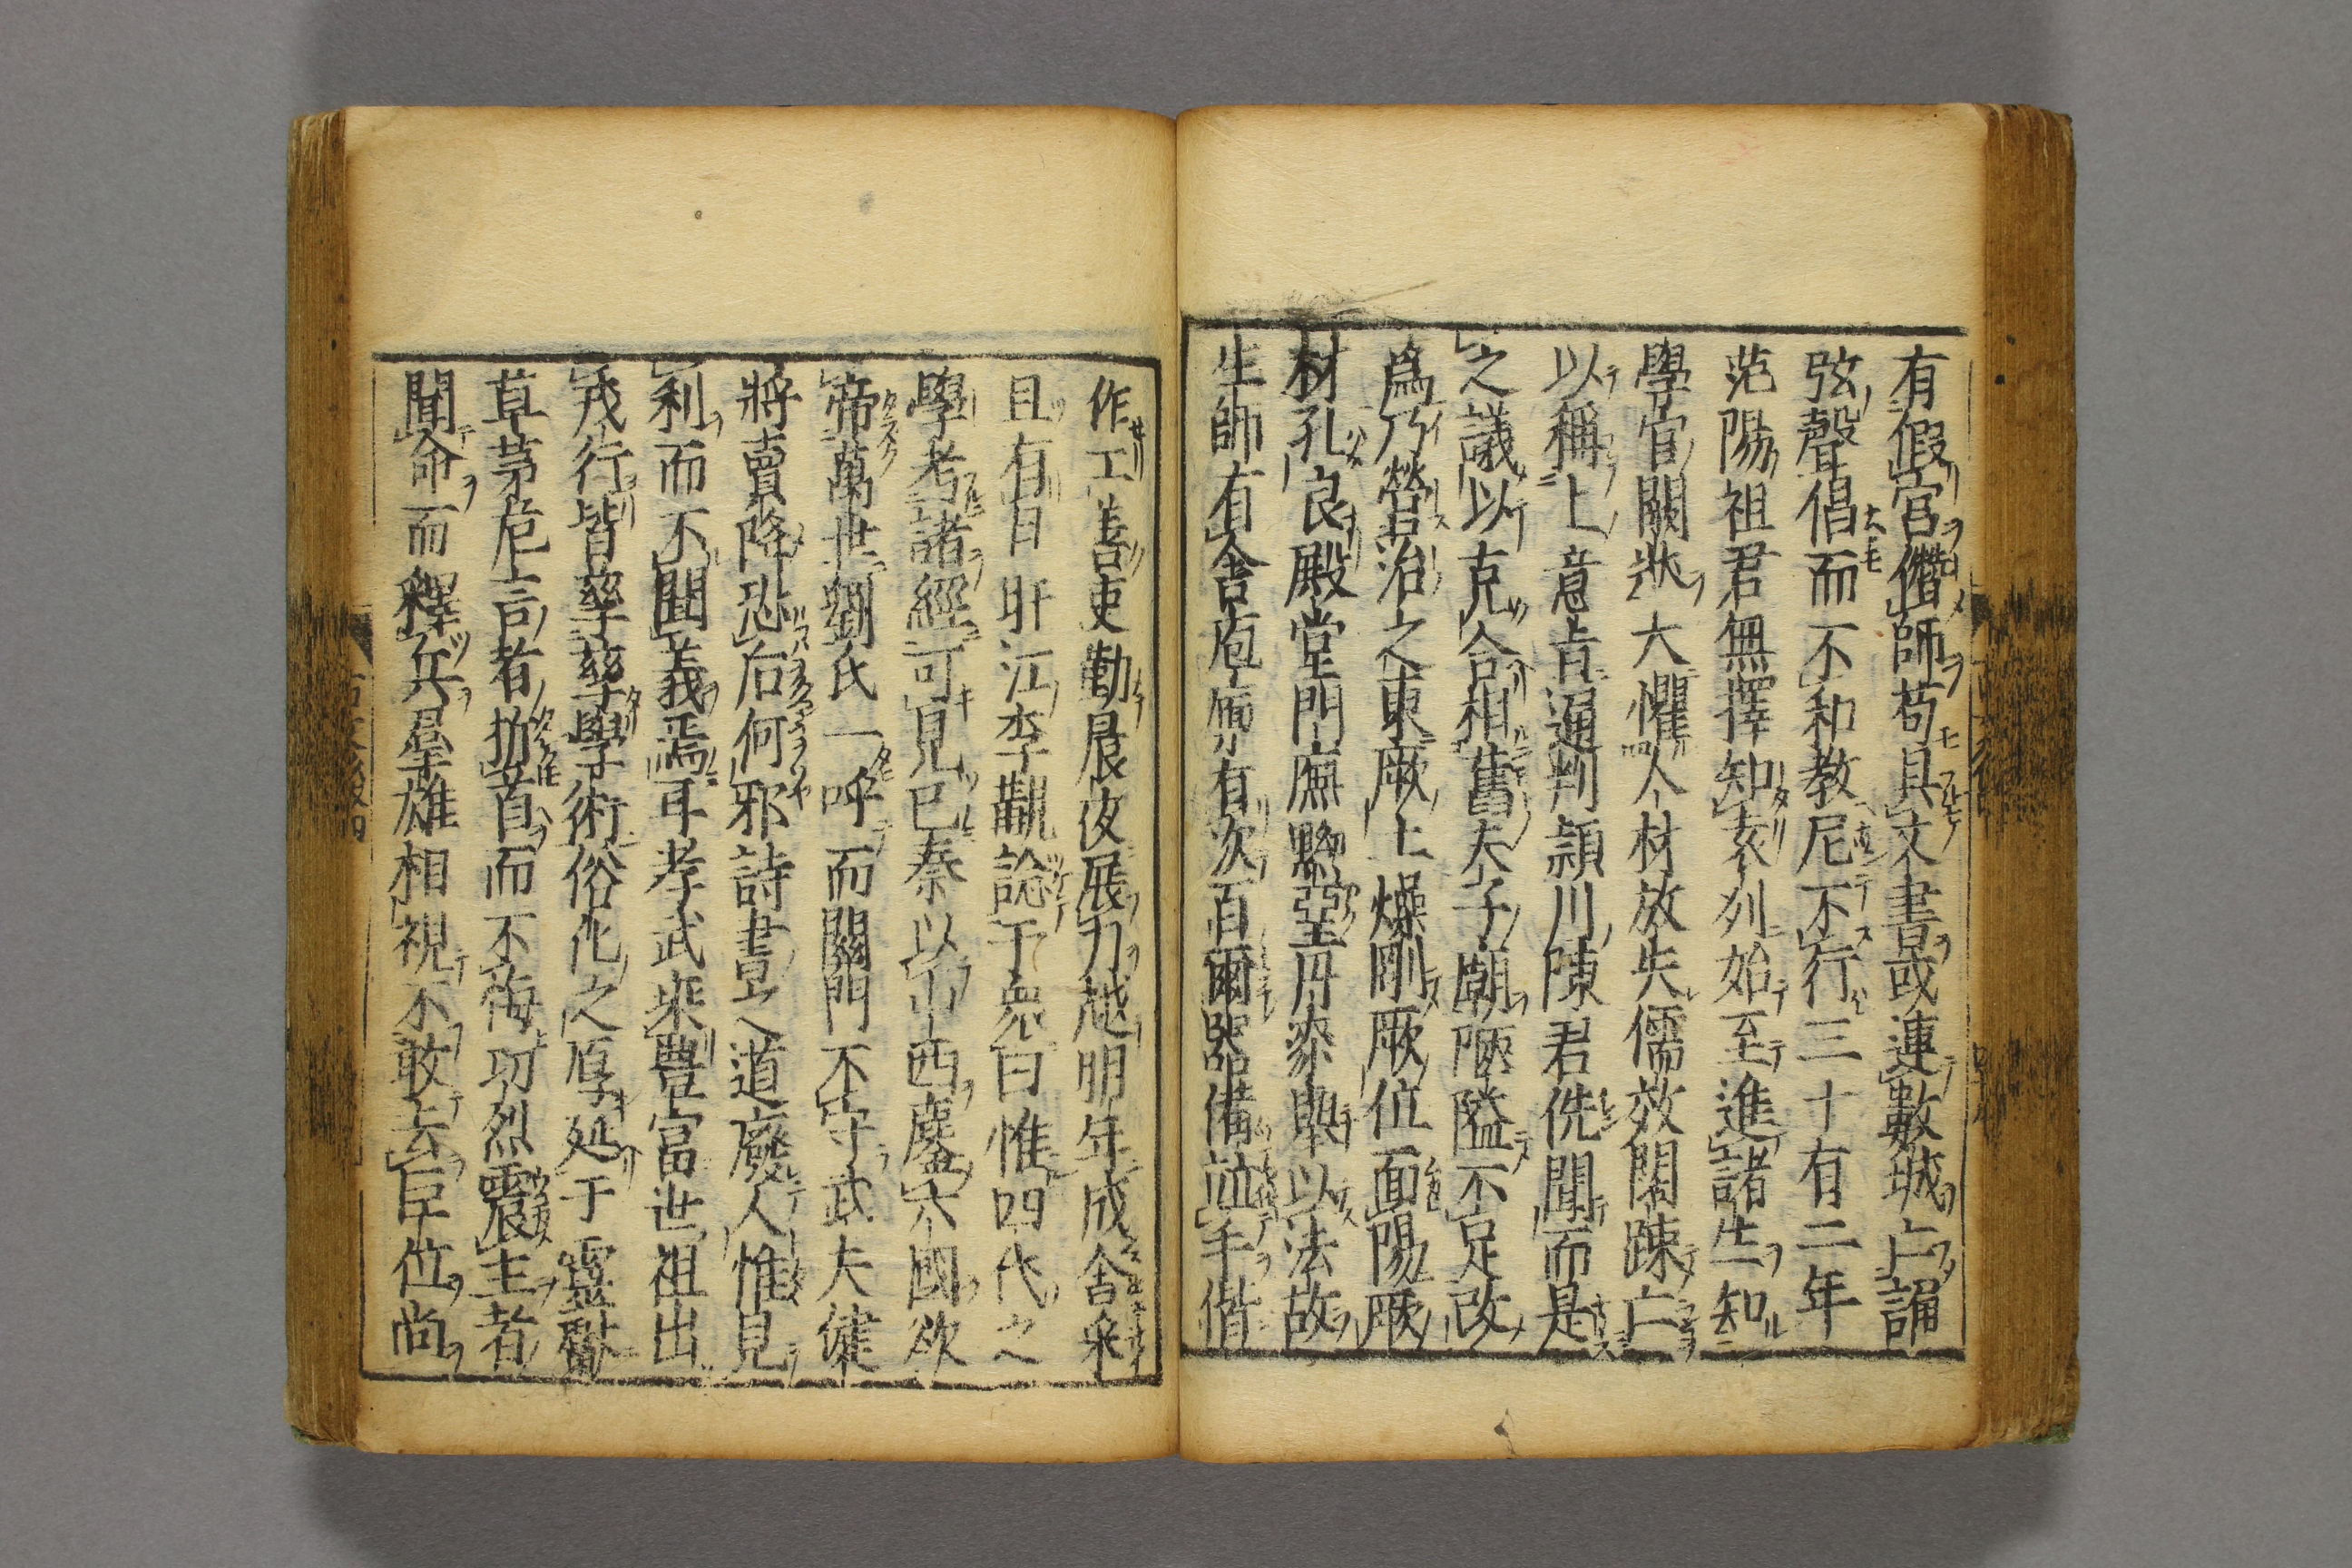 有假宮僭師苟具文書或連數城亡誦
弦聲倡而不和教尼不行三十有二年
范陽祖君無擇知袁州始至進諸生知
學官闕狀大懼人材放失儒效闊踈亡
以稱上意旨通判潁川陳君侁聞而是
之議以克合相舊夫子廟陿隘不足改
爲乃營治之東厥土燥剛厥位面陽厥
材孔良殿堂門廡黝堊丹漆舉以法故
生師有舍庖廩有次百爾器備竝手偕
作工善吏勤晨夜展力越明年成舍釆
且有日旴江李覯諗于衆曰惟四代之
學考諸經可見已秦以山西鏖六國欲
帝萬世劉氏一呼而關門不守武夫健
將賣降恐后何邪詩書之道廢人惟見
利而不聞義焉耳孝武乘豊富世祖出
戎行皆孳孳學術俗化之厚延于靈獻
草茅危言者折首而不悔功烈震主者
聞命而釋兵羣雄相視不敢去臣位尚